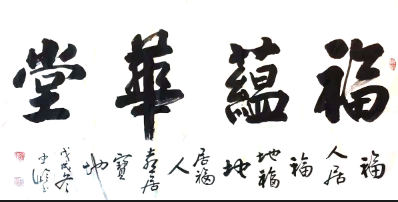 福蘊華堂
福人居福地福地居福人喜居寶地
戊戌冬